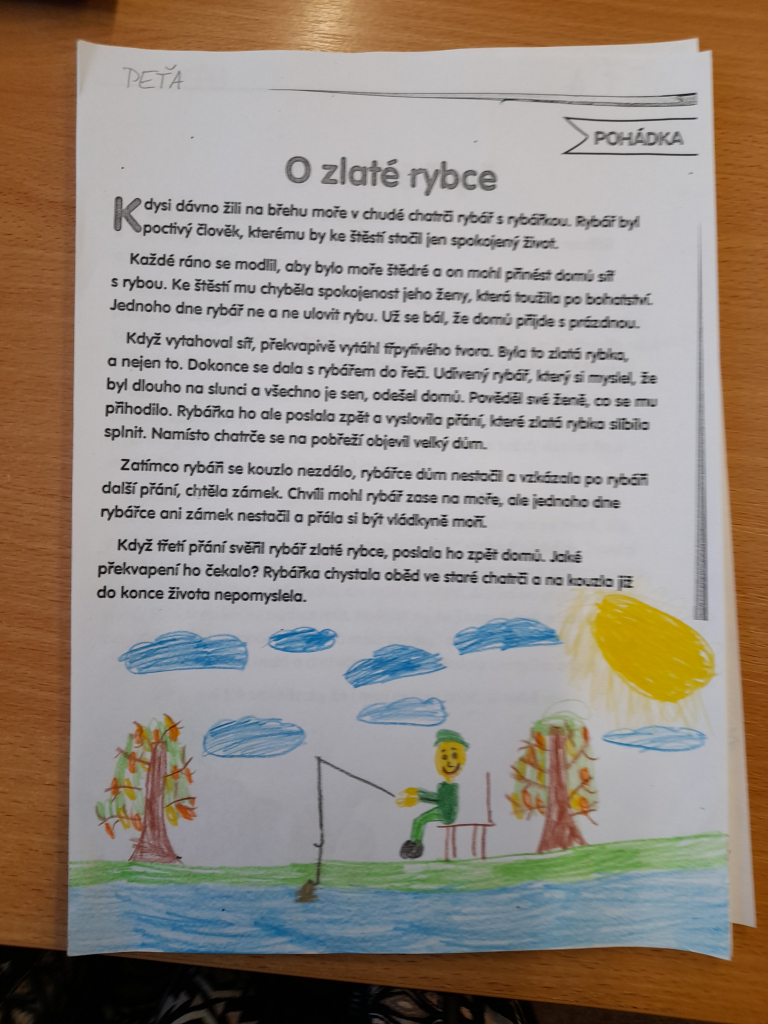 PEŤA
POHÁDKA
O zlaté rybce
Kdysi dávno žili na břehu moře v chudé chatrči rybář s rybářkou. Rybář byl
poctivý člověk, kterému by ke štěstí stačil jen spokojený život.
Každé ráno se modlil, aby bylo moře štědré a on mohl přinést domů síť
s rybou. Ke štěstí mu chyběla spokojenost jeho ženy, která toužila po bohatství.
Jednoho dne rybář ne a ne ulovit rybu. Už se bál, že domů přijde s prázdnou.
Když vytahoval síť, překvapivě vytáhl třpytivého tvora. Byla to zlatá rybka,
a nejen to. Dokonce se dala s rybářem do řeči. Udivený rybář, který si myslel, že
byl dlouho na slunci a všechno je sen, odešel domů. Pověděl své ženě, co se mu
přihodilo. Rybářka ho ale poslala zpět a vyslovila přání, které zlatá rybka slíbila
splnit. Namísto chatrče se na pobřeží objevil velký dům.
Zatímco rybáři se kouzlo nezdálo, rybářce dům nestačil a vzkázala po rybáři
další přání, chtěla zámek. Chvíli mohl rybář zase na moře, ale jednoho dne
rybářce ani zámek nestačil a přála si být vládkyně moří.
Když třetí přání svěřil rybář zlaté rybce, poslala ho zpět domů. Jaké
překvapení ho čekalo? Rybářka chystala oběd ve staré chatrči a na kouzla již
do konce života nepomyslela.